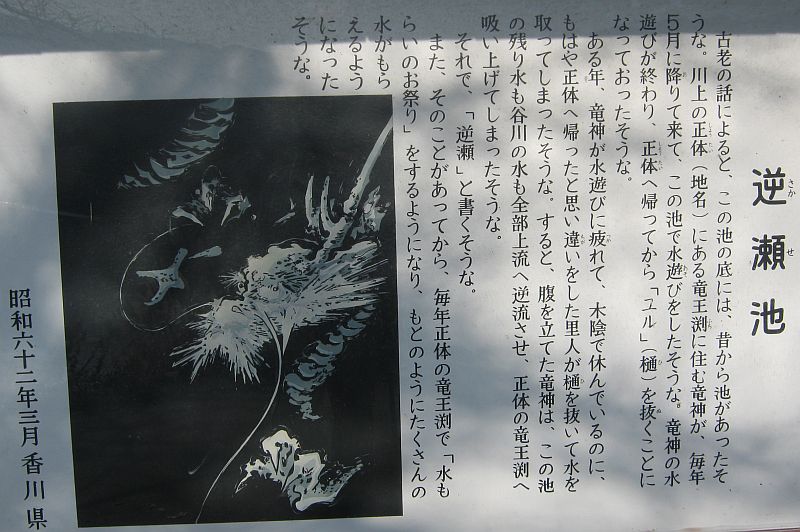 逆瀬池
さか せ
古老の話によると、この池の底には、昔から池があったそ
うな。川上の正体（地名）にある竜王渕に住む竜神が、毎年
5月に降りて来て、この池で水遊びをしたそうな。竜神の水
遊びが終わり、正体へ帰ってから「ユル」（樋）を抜くことに
なっておったそうな。
ある年、竜神が水遊びに疲れて、木陰で休んでいるのに、
もはや正体へ帰ったと思い違いをした里人が樋を抜いて水を
取ってしまったそうな。すると、腹を立てた竜神は、この池
の残り水も谷川の水も全部上流へ逆流させ、正体の竜王渕へ
吸い上げてしまったそうな。
それで、「逆瀬」と書くそうな。
また、そのことがあってから、毎年正体の竜王渕で「水も
らいのお祭り」をするようになり、もとのようにたくさんの
水がもら
えるよう
になった
そうな。
昭和六十二年三月 香川県